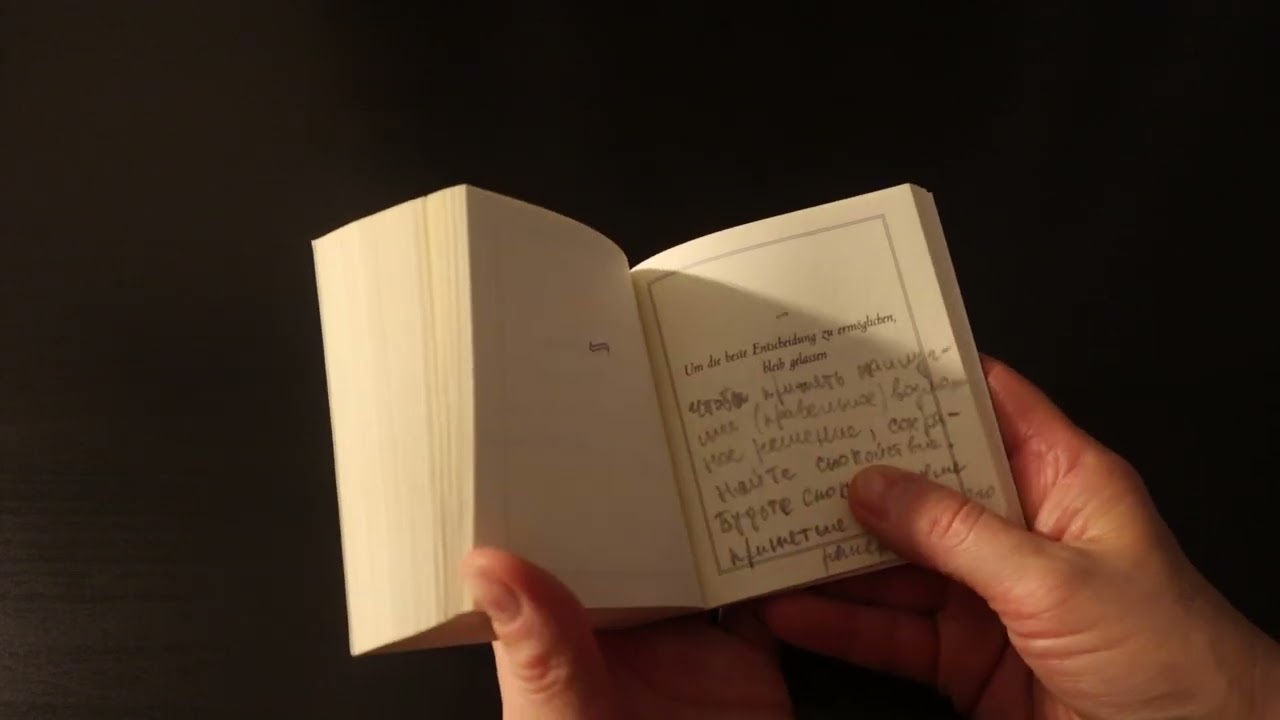 Um die beste Entscheidung zu ermöglichen,
bleib gelassen
чтобы принять наилуч-
шее (правельное) возмож
ное решение, сохра-
найте спокойствие.
Будьте
примете